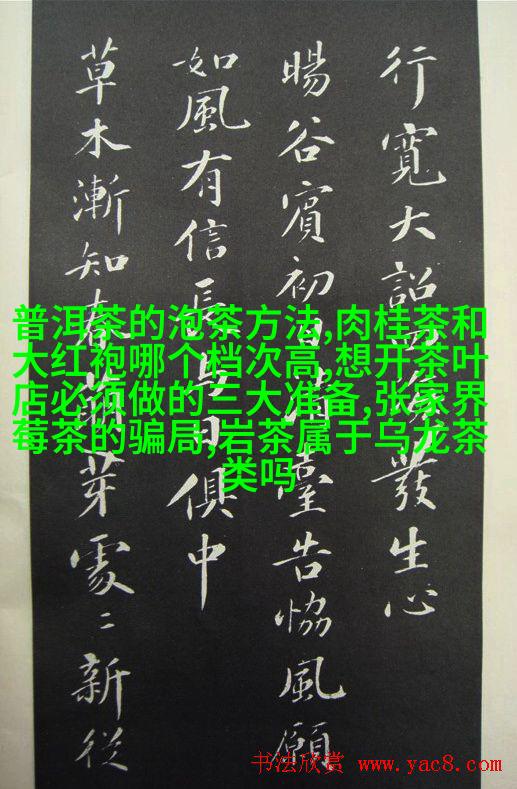 行寬大詔發生心
暘谷賓初日清臺告恊風願
如風有信長與日俱中
草木漸知春萌芽處〻新從
普洱茶的泡茶方法,肉桂茶和
大红袍哪个档次高,想开茶叶
店必须做的三大准备,张家界
莓茶的骗局,岩茶属于乌龙茶
类吗
书法欣赏 www.yac8.com